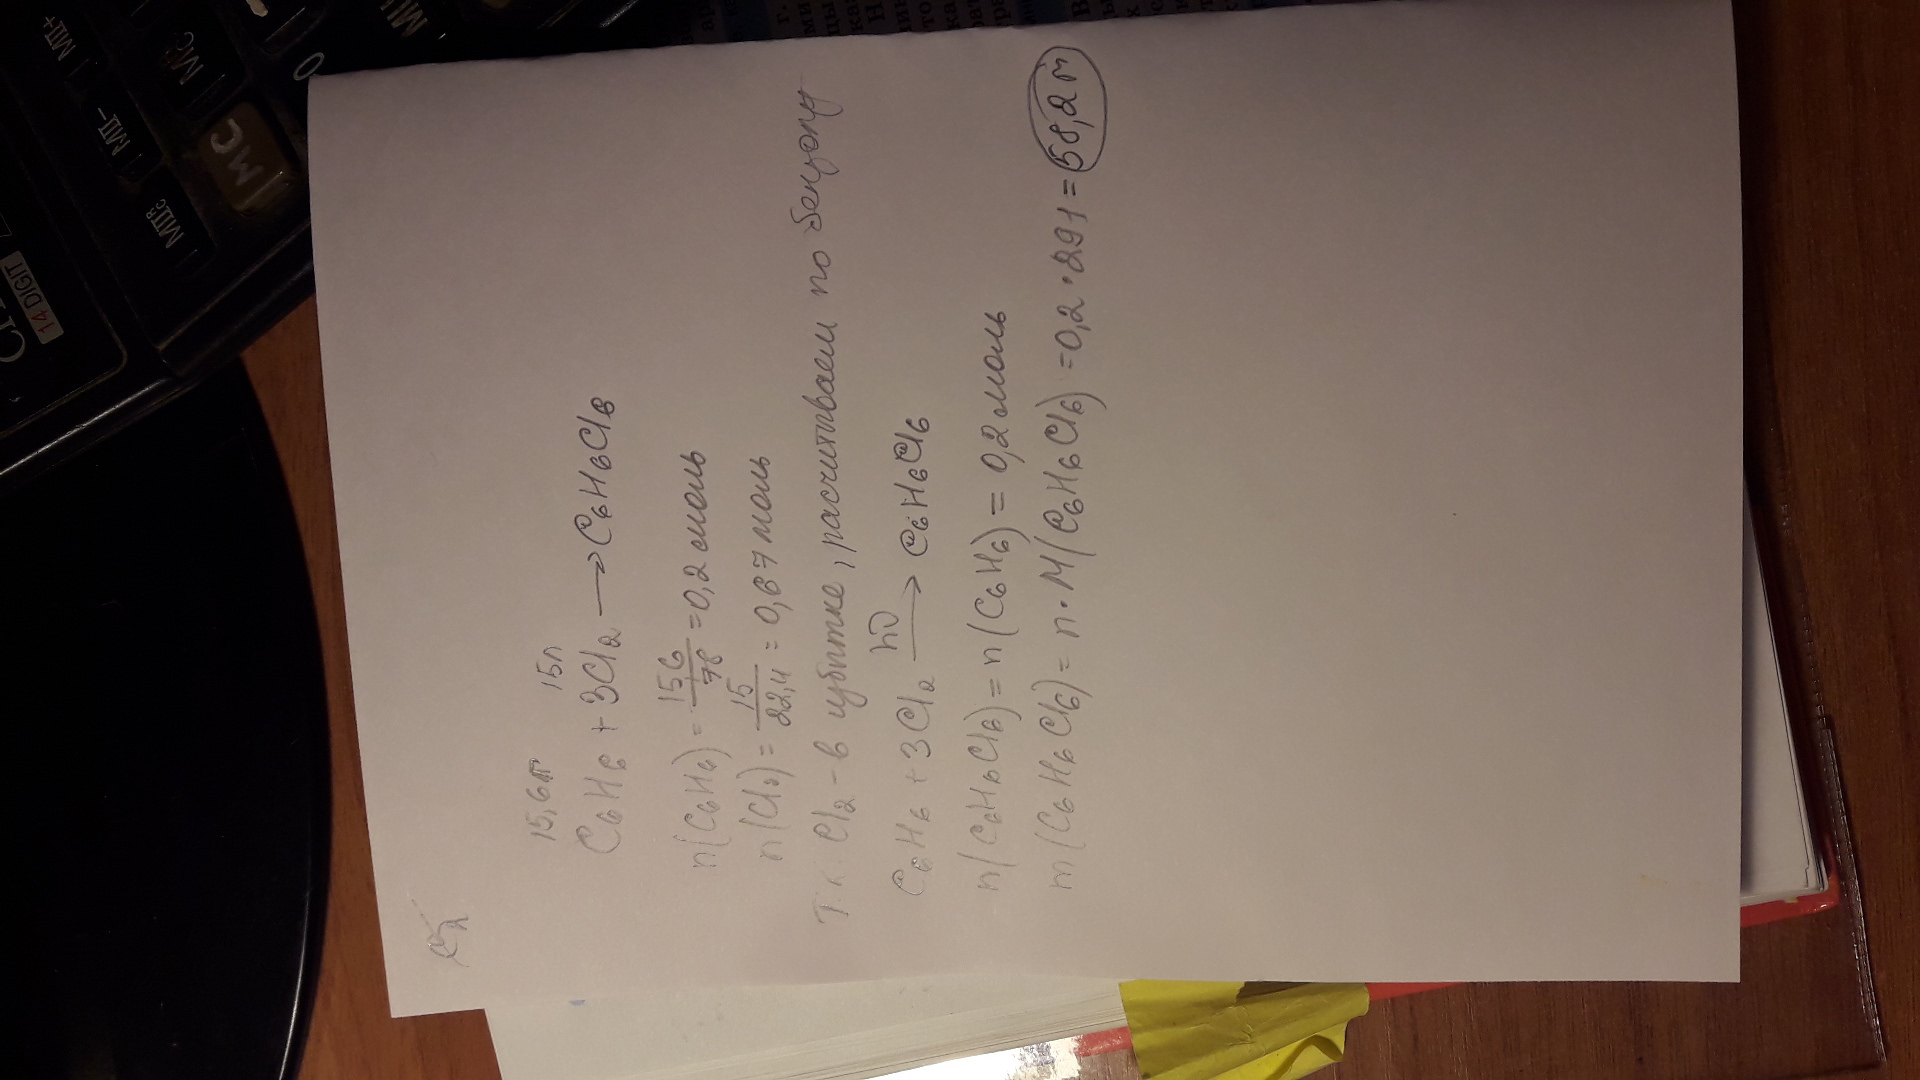 15,6г 15л
C₆H₆ + 3Cl₂ ⟶ C₆H₆Cl₆
n(C₆H₆) = 15,6/78 = 0,2 моль
n(Cl₂) = 15/22,4 = 0,67 моль
Т.к. Cl₂ - в избытке, расчитываем по бензолу
C₆H₆ + 3Cl₂ hν⟶ C₆H₆Cl₆
n(C₆H₆Cl₆) = n(C₆H₆) = 0,2 моль
m(C₆H₆Cl₆) = n·M(C₆H₆Cl₆) = 0,2·291 = 58,2 г
14 DIGIT
МП+
МП-
МС
MC